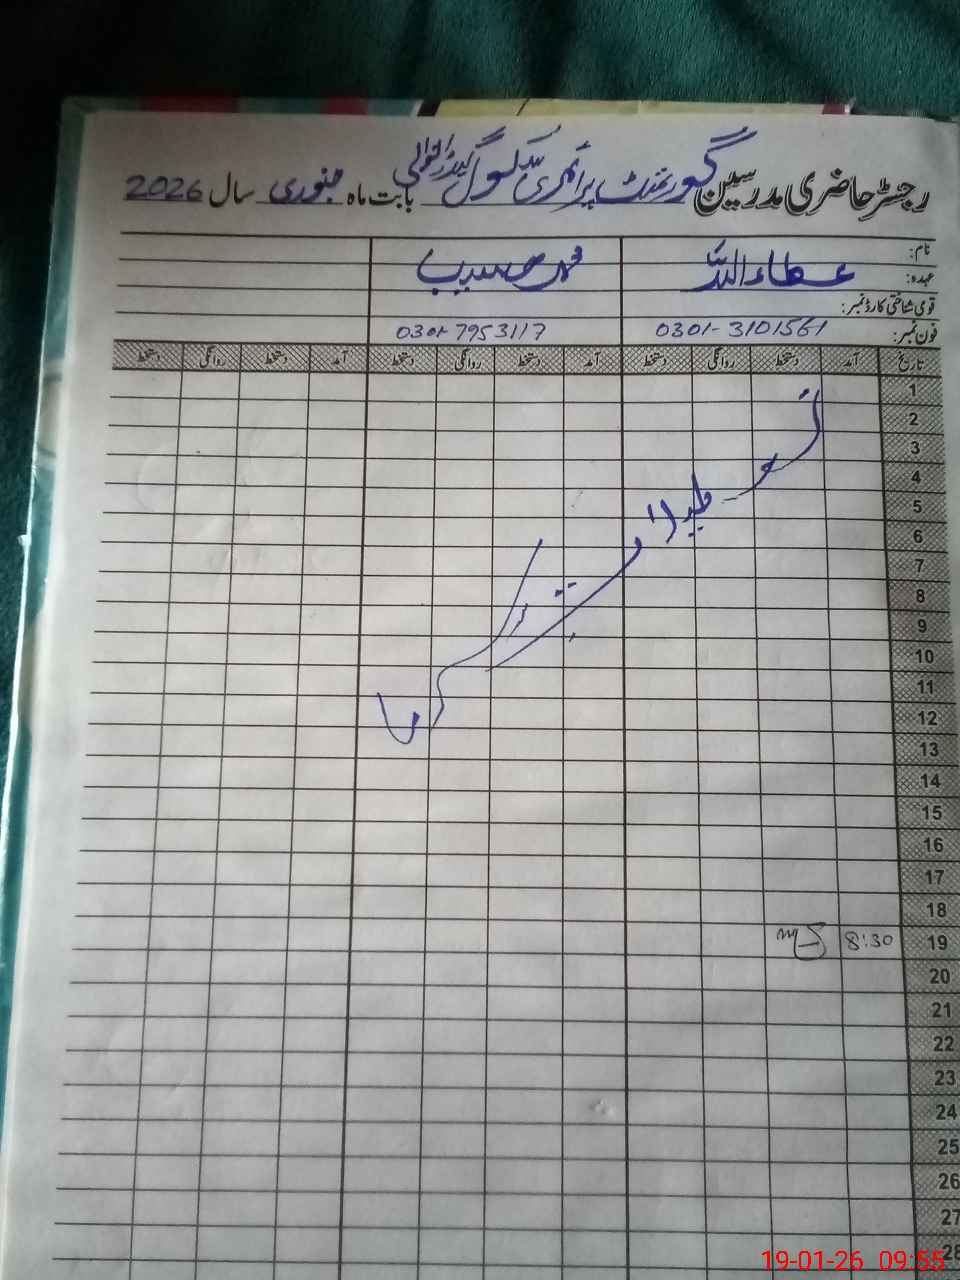 رجسٹر حاضری مدرسین گورنمنٹ پرائمری سکول بابت ماہ جنوری سال 2026
نام: عطاء اللہ محمد حسیب
عہدہ:
قومی شناختی کارڈ نمبر:
فون نمبر: 0301-3101561 0301-7953117
تاریخ آمد دستخط روانگی دستخط آمد دستخط روانگی دستخط آمد دستخط روانگی دستخط
1
2
3
4
5
6
7
8
9
10
11
12
13
14
15
16
17
18
19 8:30
20
21
22
23
24
25
26
27
28
19-01-26 09:55